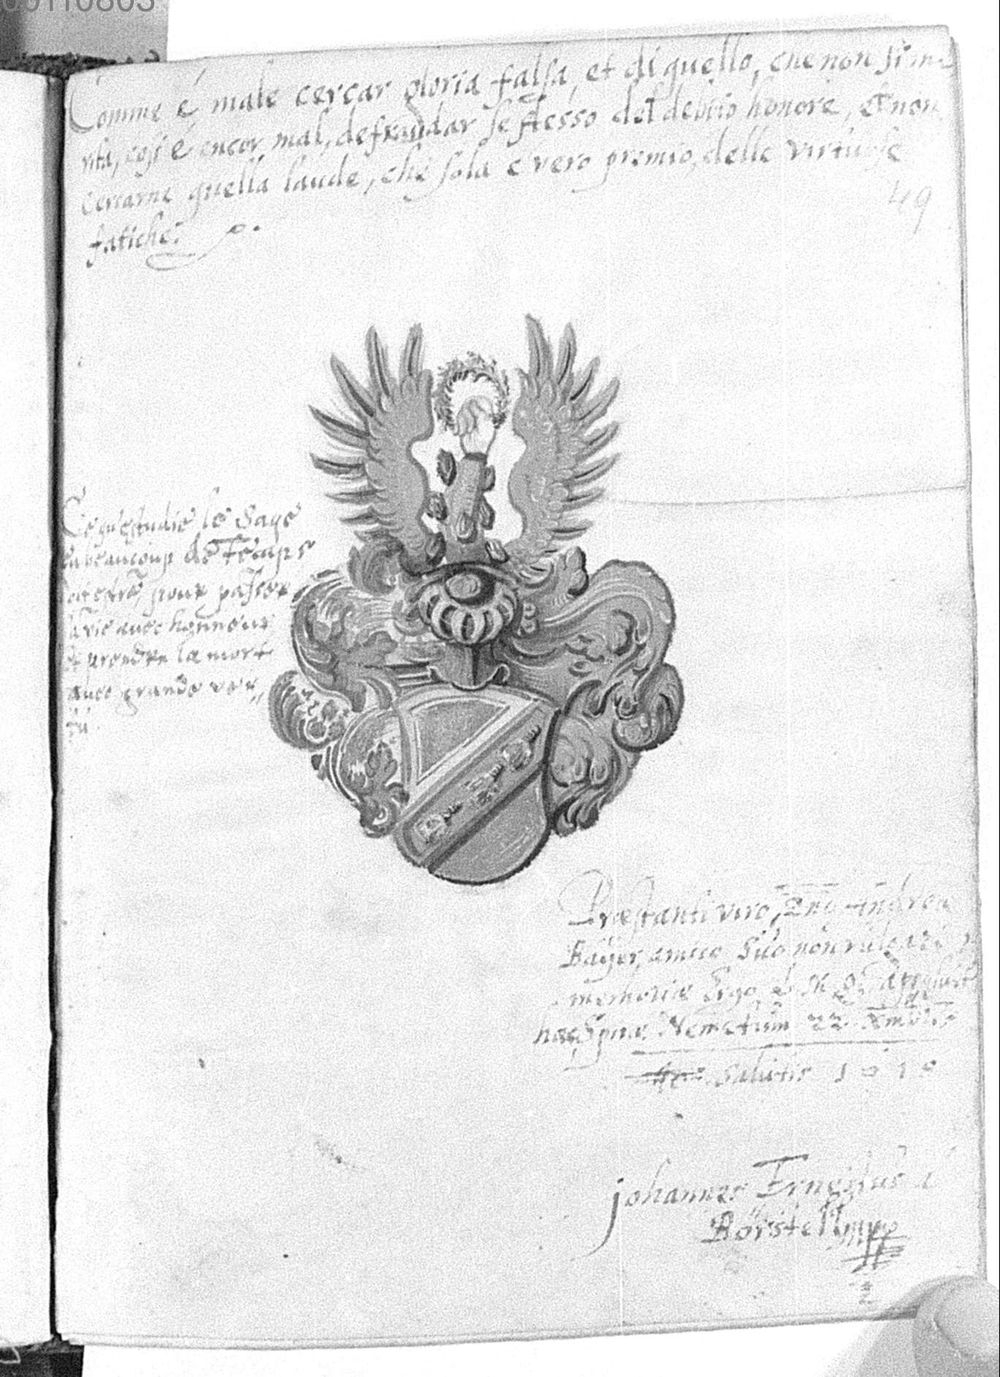 00110803
Comme é male cerçar gloria falsa, et di quello, che non si me
rita, cosi é encor mal, defraudar se stesso del debito honore, et non
cercarne quella laude, che sola e vero premio, delle virtuose
fatiche.
49
Ce qu'estudie le Sage
en beaucoup de Temps
pour passer
la vie avec honneur
et prendre la mort
avec grande ver„
tu
Præstanti viro, Dno Andreæ
Bayer, amico suo non vulgari
memoriæ Ergo
hæc Spiræ Nemetum 22 Xmbris
Salutis 1619
Johannes Ernestus à
Börstell mpp